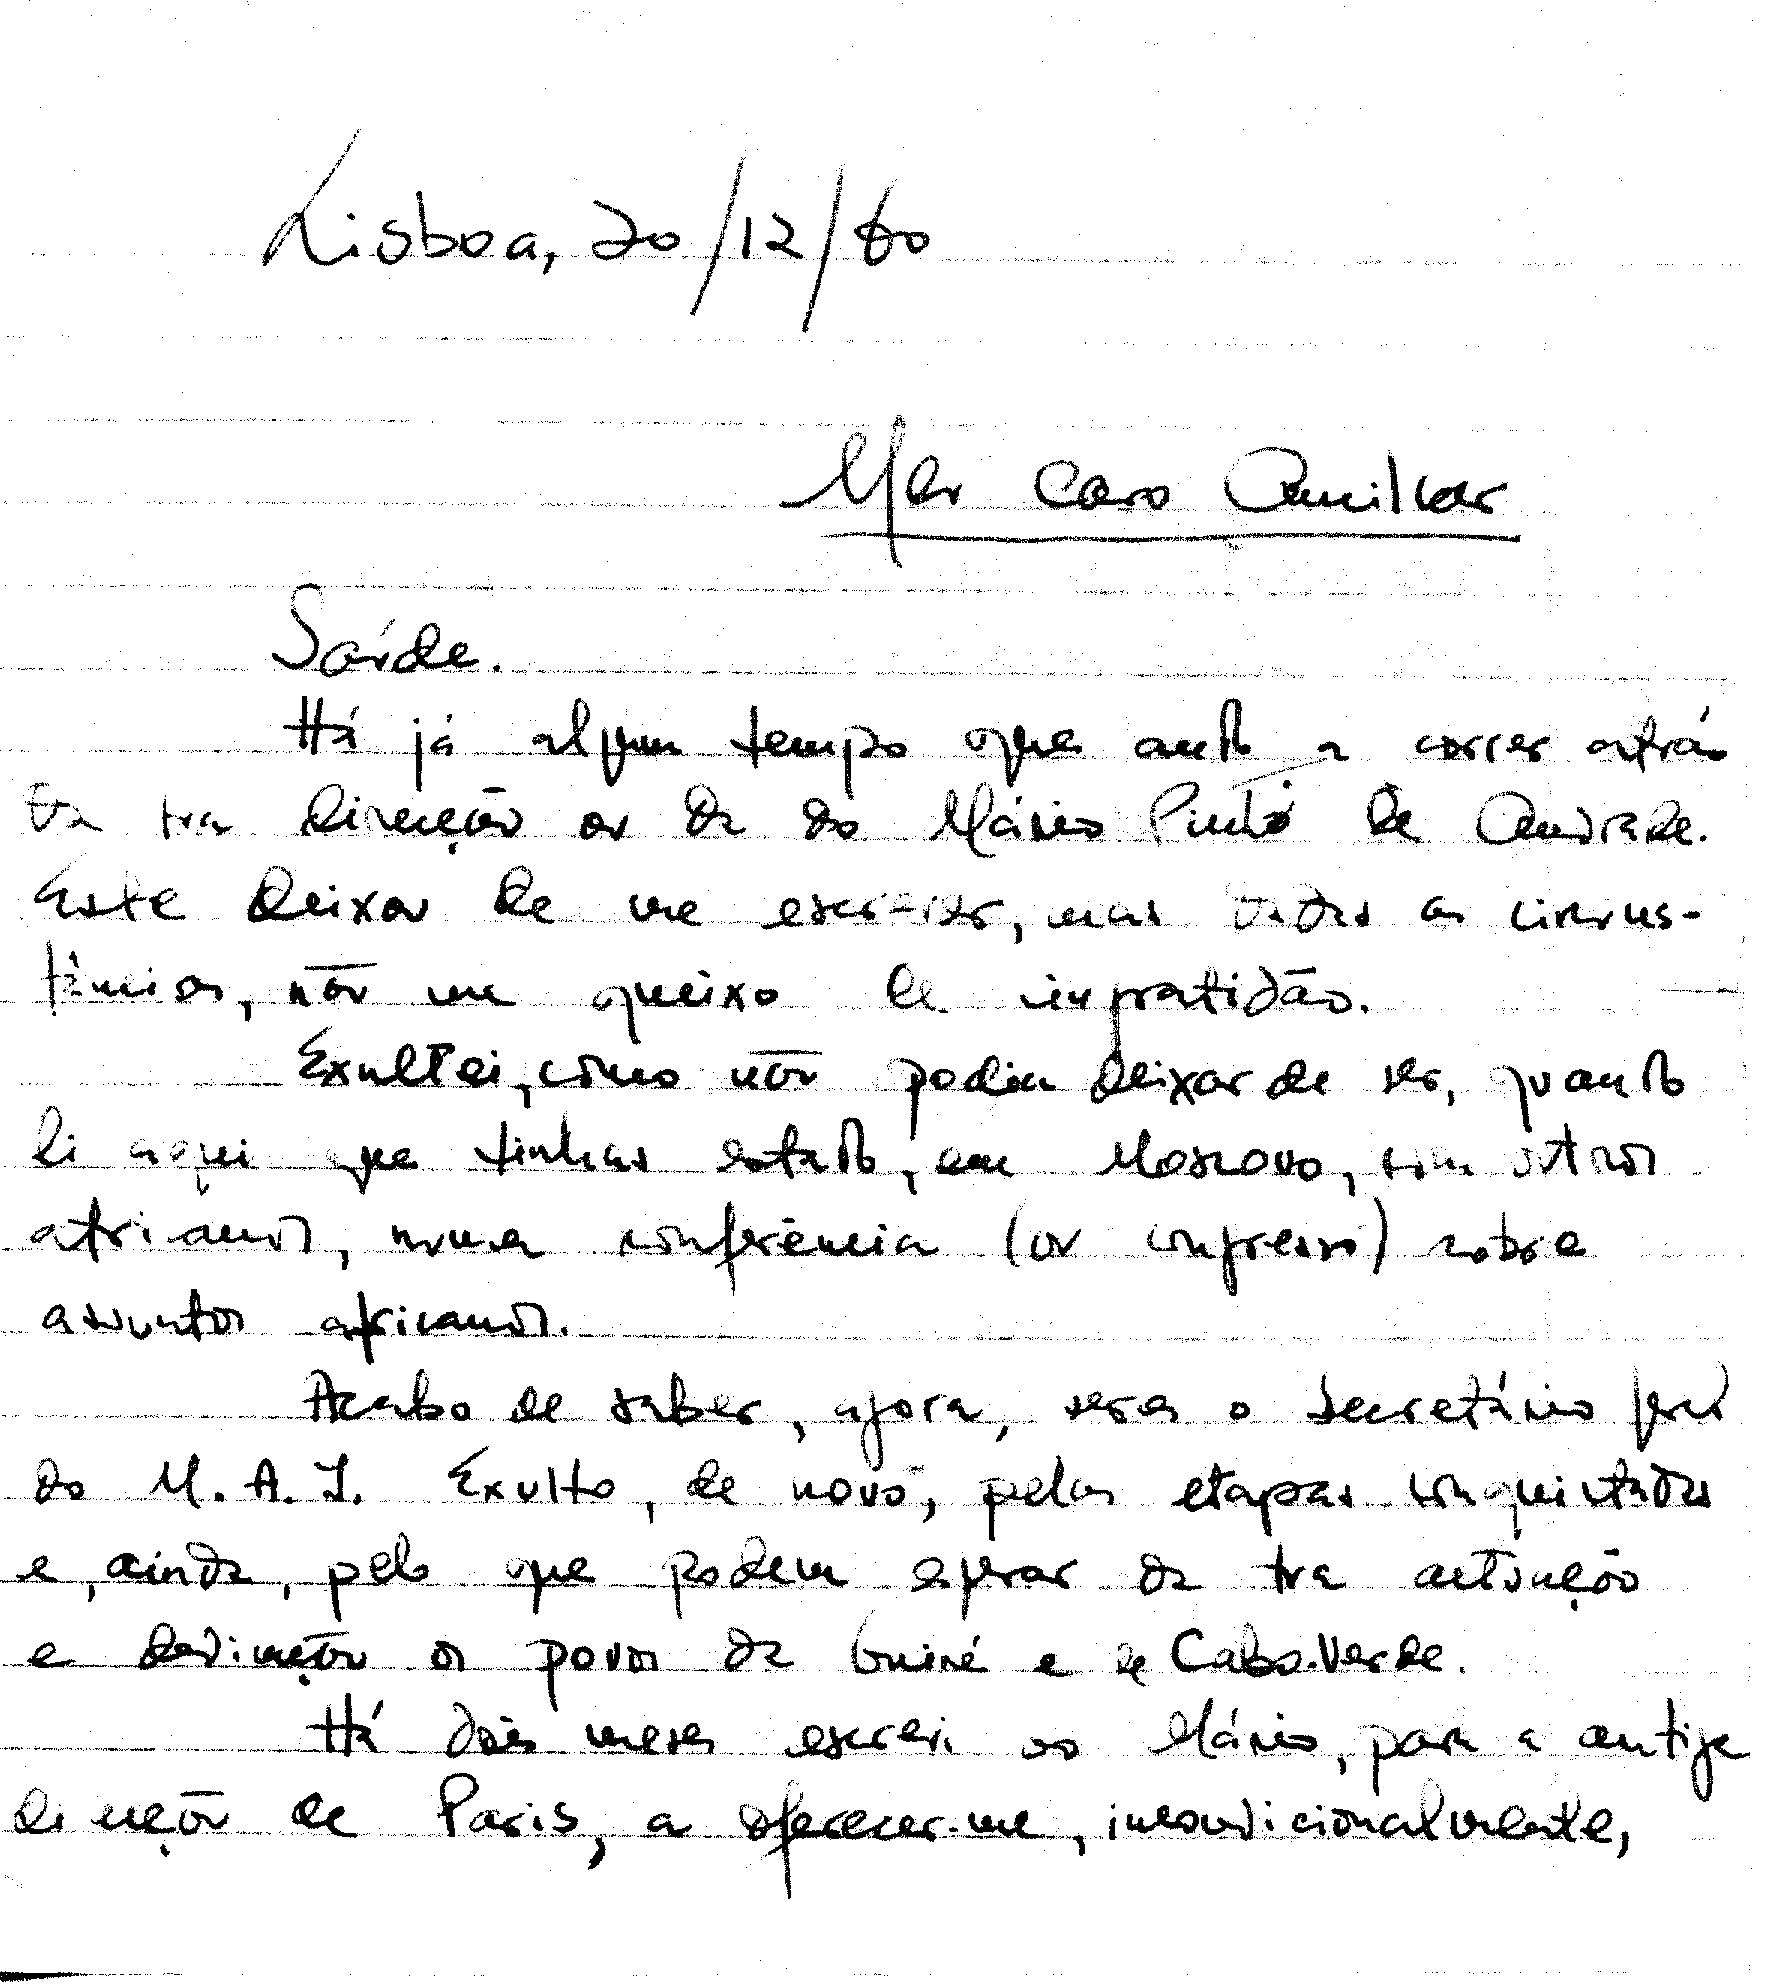 Lisboa, 20/12/60
Meu caro Amilcar
Saúde.
Há já algum tempo que ando a correr atrás
da tua direcção ou da do Mário Pinto de Andrade.
Este deixou de me escrever, mas dadas as circuns-
tâncias, não me queixo de ingratidão.
Exultei, como não podia deixar de ser, quando
li aqui que tinhas estado, em Moscovo, com outros
africanos, numa conferência (ou congresso) sobre
assuntos africanos.
Acabo de saber, agora, seres o secretário geral
do M.A.I. Exulto, de novo, pelas etapas conquistadas
e, ainda, pelo que podem esperar da tua actuação
e dedicação os povos da Guiné e de Cabo-Verde.
Há dois meses escrevi ao Mário, para a antiga
direcção de Paris, a oferecer-me, incondicionalmente,